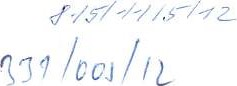 815/1115/12
331/001/12